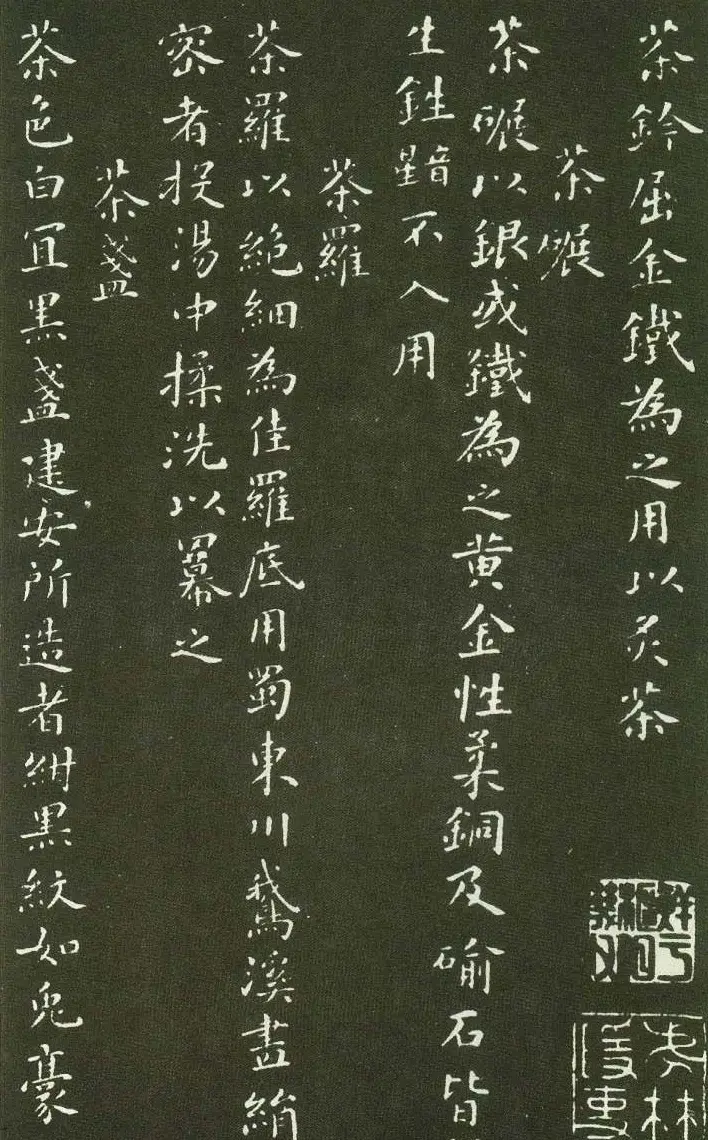 茶鈐屈金鐵為之用以炙茶
茶碾
茶碾以銀或鐵為之黄金性柔銅及石皆
生鉎音星不入用
茶羅
茶羅以絶細為佳羅底用蜀東川鵝溪畫絹
密者投湯中揉洗以羃之
茶盞
茶色白宜黒盞建安所造者紺黒紋如兔豪